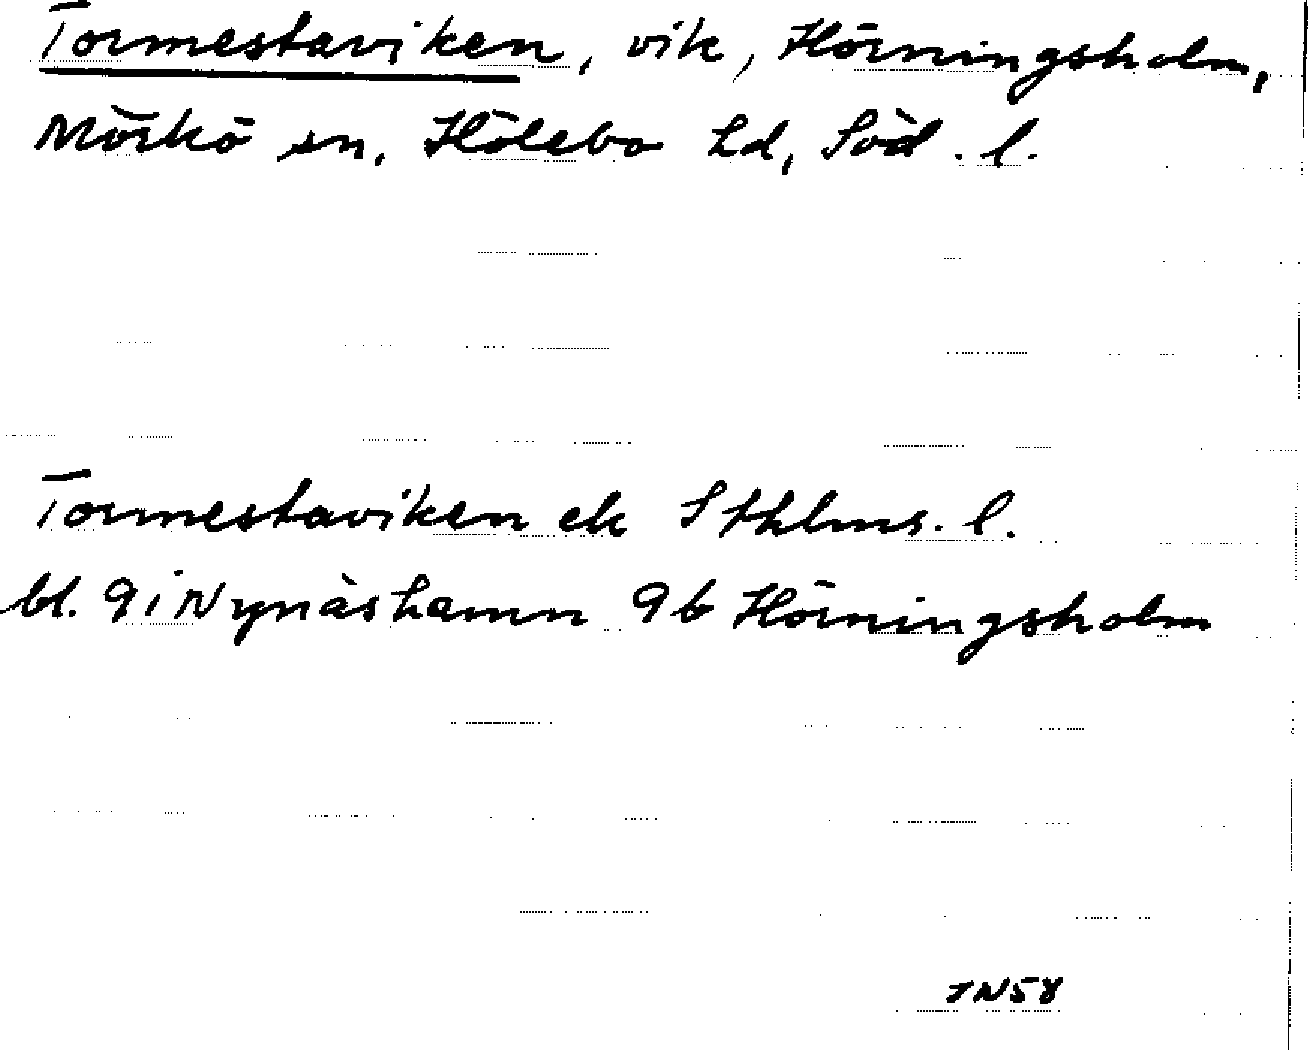 Tormestaviken, vik, Hörningsholm,
Mörkö sn, Hölebo hd, Söd. l.
Tormestaviken ek Sthlms. l.
bl. 9 i Nynäshamn 9b Hörningsholm
JN58